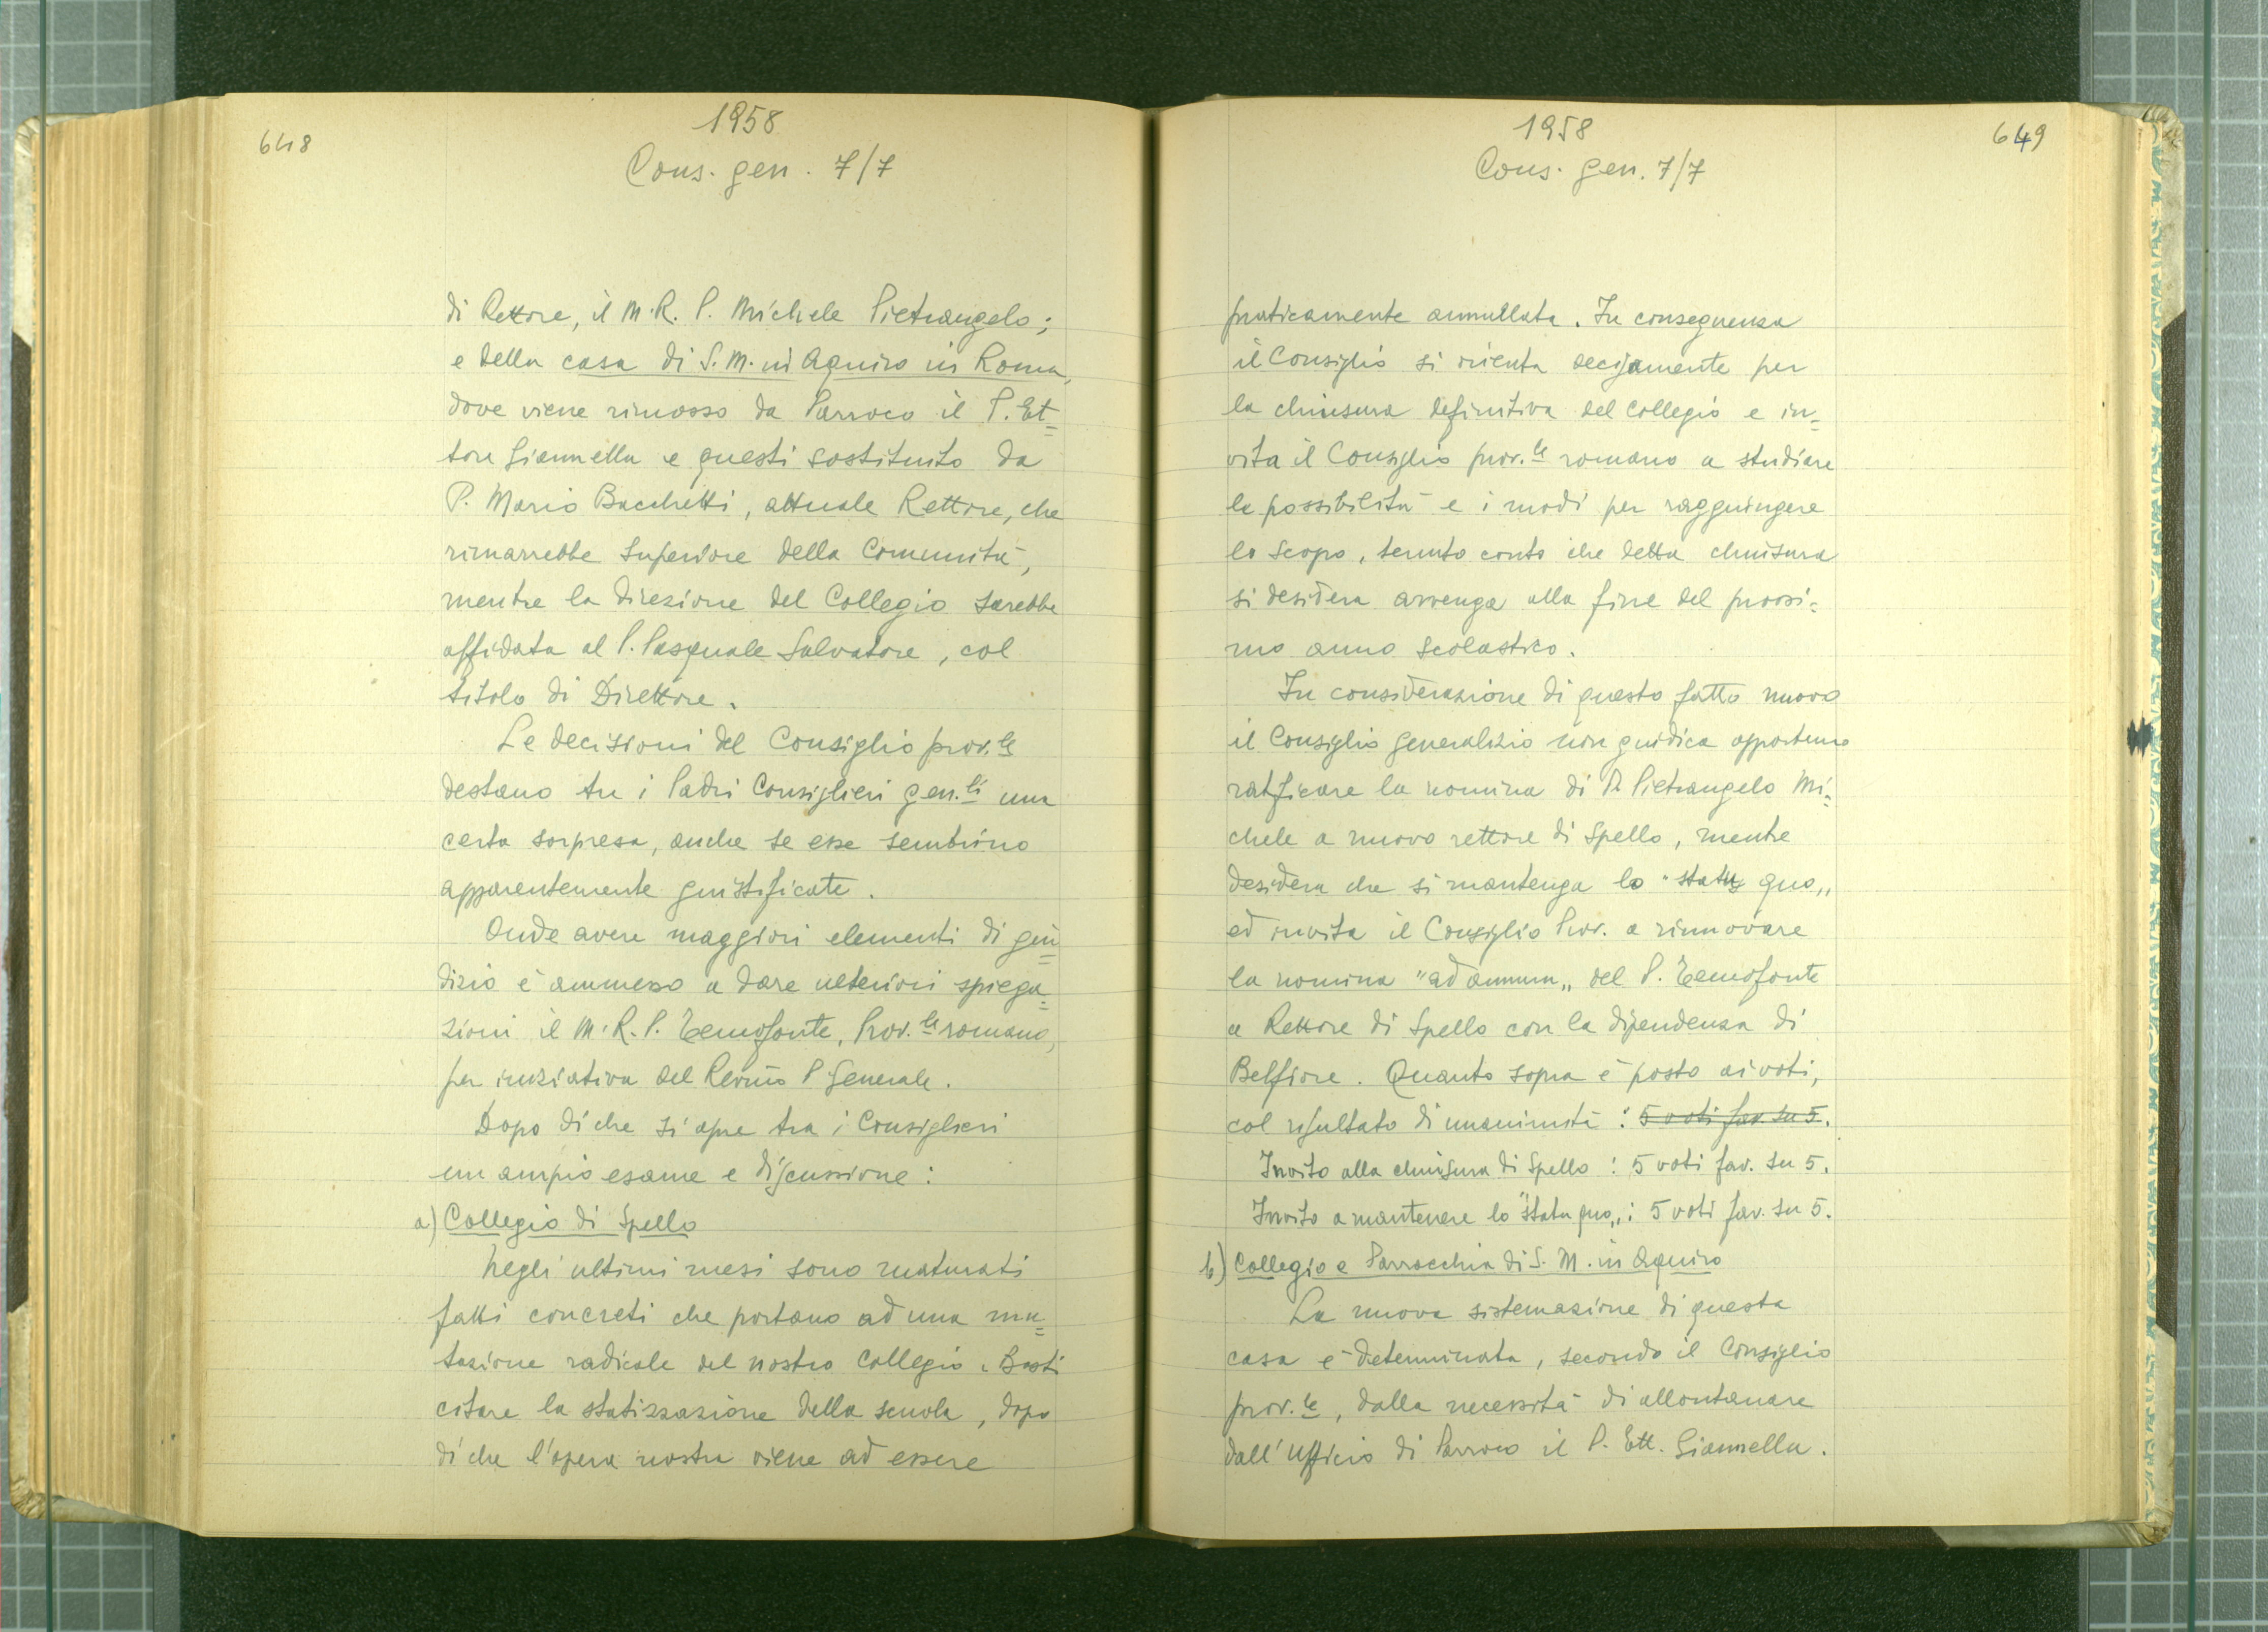 648
1958
Cons. gen. 7/7
di Rettore, il M.R. P. Michele Pietrangelo;
e della casa di S. M. in Aquiro in Roma,
dove viene rimosso da Parroco il P. Et=
tore Giannella e questi sostituito da
P. Mario Bacchetti, attuale Rettore, che
rimarrebbe Superiore della Comunità,
mentre la direzione del Collegio sarebbe
affidata al P. Pasquale Salvatore, col
titolo di Direttore.
Le decisioni del Consiglio prov.le
destano tra i Padri Consiglieri gen.li una
certa sorpresa, anche se esse sembrino
apparentemente giustificate.
Onde avere maggiori elementi di giu=
dizio è ammesso a dare ulteriori spiega=
zioni il M.R.P. Temofonte, Prov.le romano,
per iniziativa del Rev.mo P. Generale.
Dopo di che si apre tra i Consiglieri
un ampio esame e discussione:
a) Collegio di Spello
Negli ultimi mesi sono maturati
fatti concreti che portano ad una mu=
tazione radicale del nostro Collegio. Basti
citare la statizzazione della scuola, dopo
di che l'opera nostra viene ad essere
649
1958
Cons. gen. 7/7
praticamente annullata. In conseguenza
il Consiglio si orienta decisamente per
la chiusura definitiva del Collegio e in=
vita il Consiglio prov.le romano a studiare
le possibilità e i modi per raggiungere
lo scopo, tenuto conto che detta chiusura
si desidera avvenga alla fine del prossi=
mo anno scolastico.
In considerazione di questo fatto nuovo
il Consiglio generalizio non giudica opportuno
ratificare la nomina di P. Pietrangelo Mi=
chele a nuovo rettore di Spello, mentre
desidera che si mantenga lo "status quo„
ed invita il Consiglio Prov. a rinnovare
la nomina "ad annum„ del P. Temofonte
a Rettore di Spello con la dipendenza di
Belfiore. Quanto sopra è posto ai voti,
col risultato di unanimità: 5 voti fav. su 5.
Invito alla chiusura di Spello: 5 voti fav. su 5.
Invito a mantenere lo "statu quo„: 5 voti fav. su 5.
b) Collegio e Parrocchia di S. M. in Aquiro
La nuova sistemazione di questa
casa è determinata, secondo il Consiglio
prov.le, dalla necessità di allontanare
dall'ufficio di Parroco il P. Ett. Giannella.